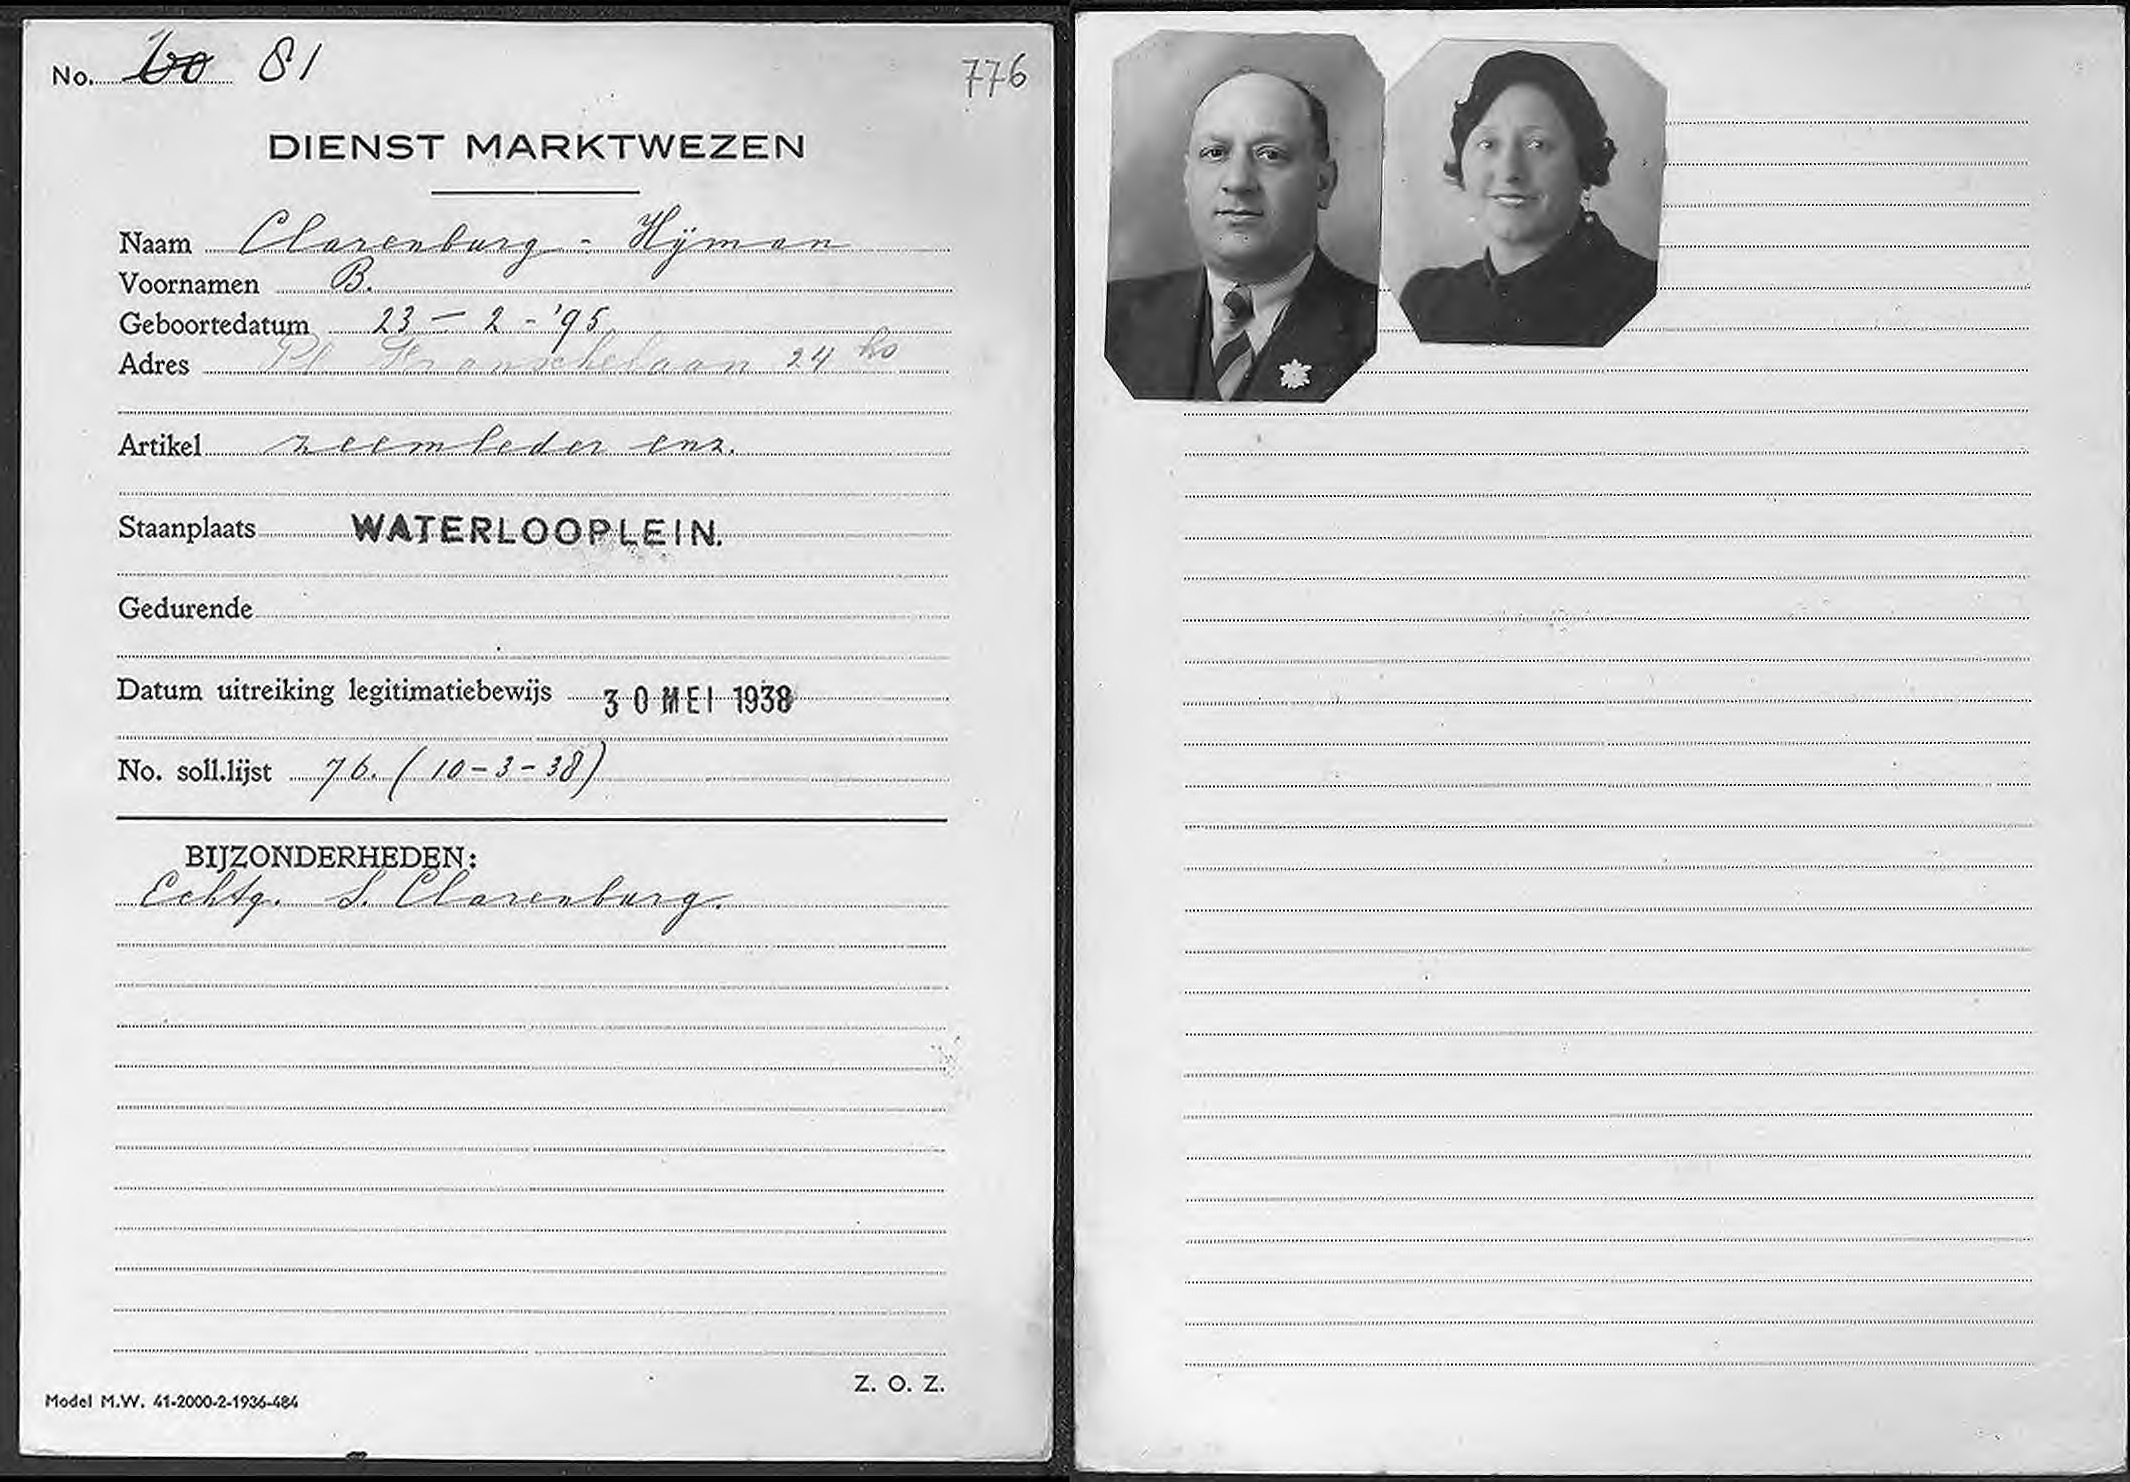 No. 60 81
776
DIENST MARKTWEZEN
Naam Clarenburg - Hijman
Voornamen B.
Geboortedatum 23 - 2 - '95
Adres Pl. Franschelaan 24 hs
Artikel zeemleder enz.
Staanplaats WATERLOOPLEIN.
Gedurende
Datum uitreiking legitimatiebewijs 30 MEI 1938
No. soll.lijst 76. (10-3-38)
BIJZONDERHEDEN:
Echtg. S. Clarenburg.
Z. O. Z.
Model M.W. 41-2000-2-1936-484